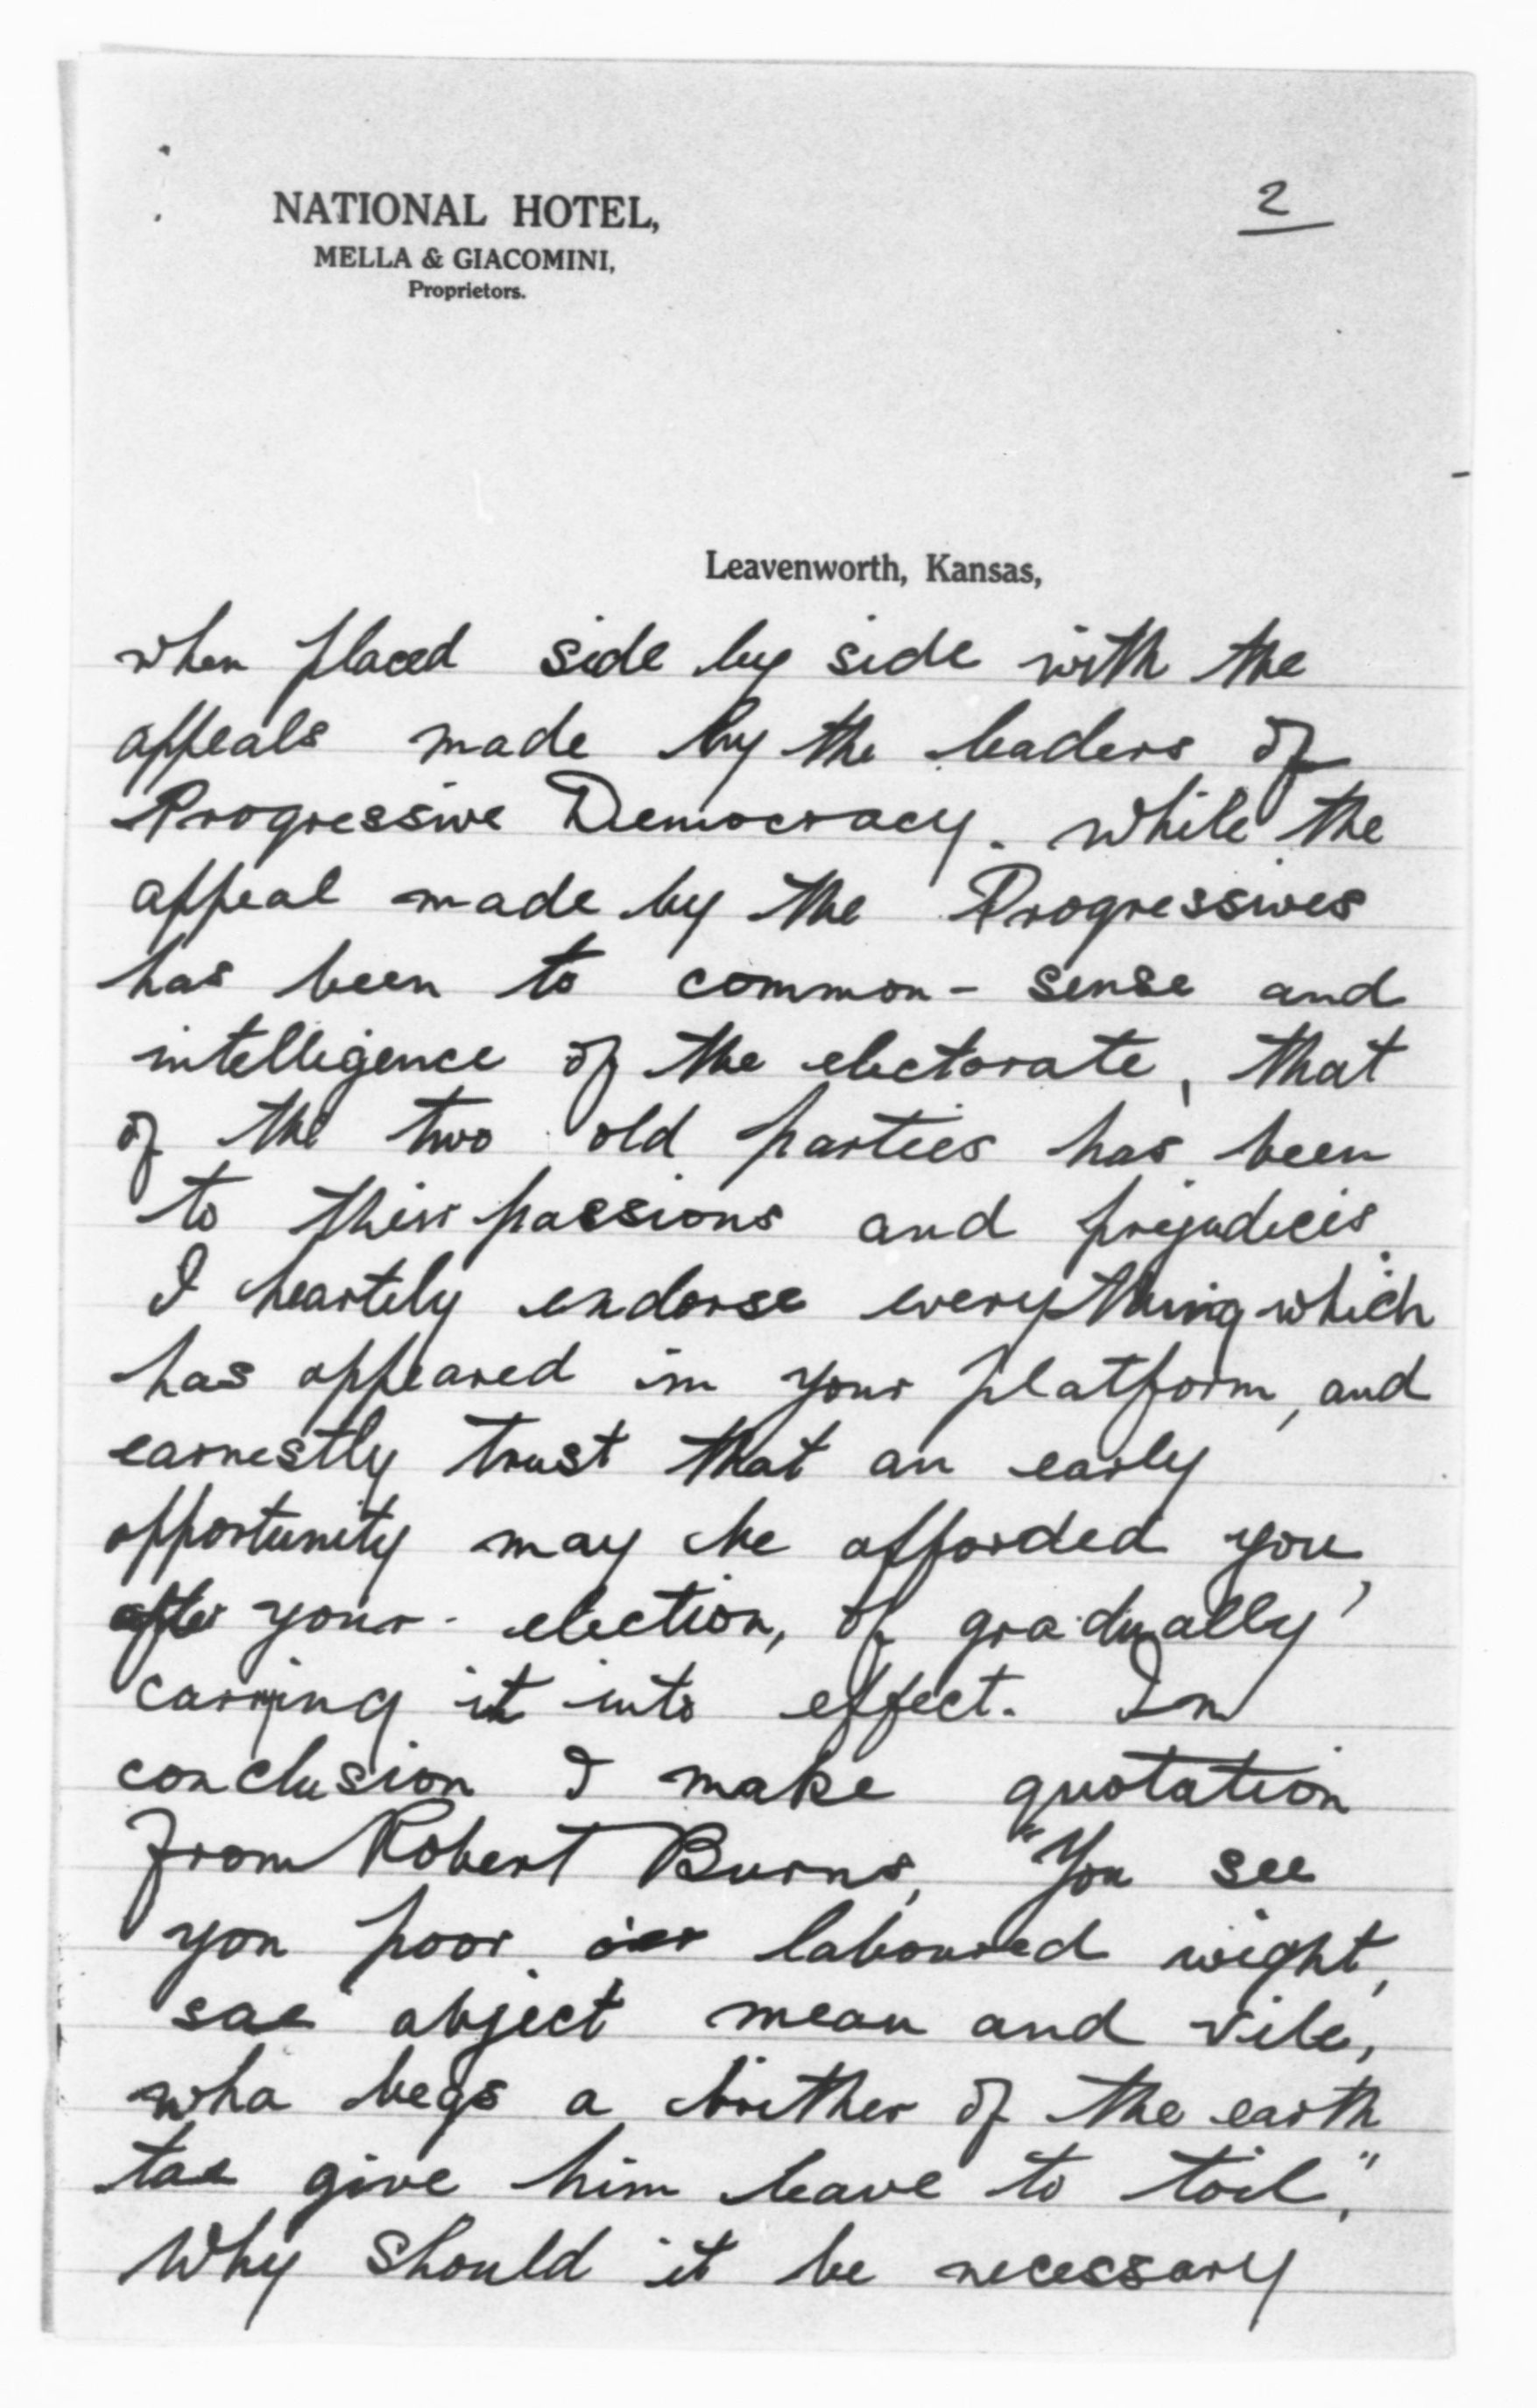 NATIONAL HOTEL,
2
MELLA & GIACOMINI,
Proprietors.
Leavenworth, Kansas,
when placed side by side with the
appeals made by the leaders of
Progressive Democracy. while the
appeal made by the Progressives
has been to common-sense and
intelligence of the electorate, that
of the two old parties has been
to their passions and prejudices.
I heartely endorse everything which
has appeared in your platform, and
earnestly trust that an early
opportunity may be afforded you,
after your election, of gradually
carrying it into effect. In
conclusion I make quotation
from Robert Burns, "You see
yon poor oer laboured wight,
sae abject mean and vile,
wha begs a brither of the earth
tae give him leave to toil,"
Why should it be necessary